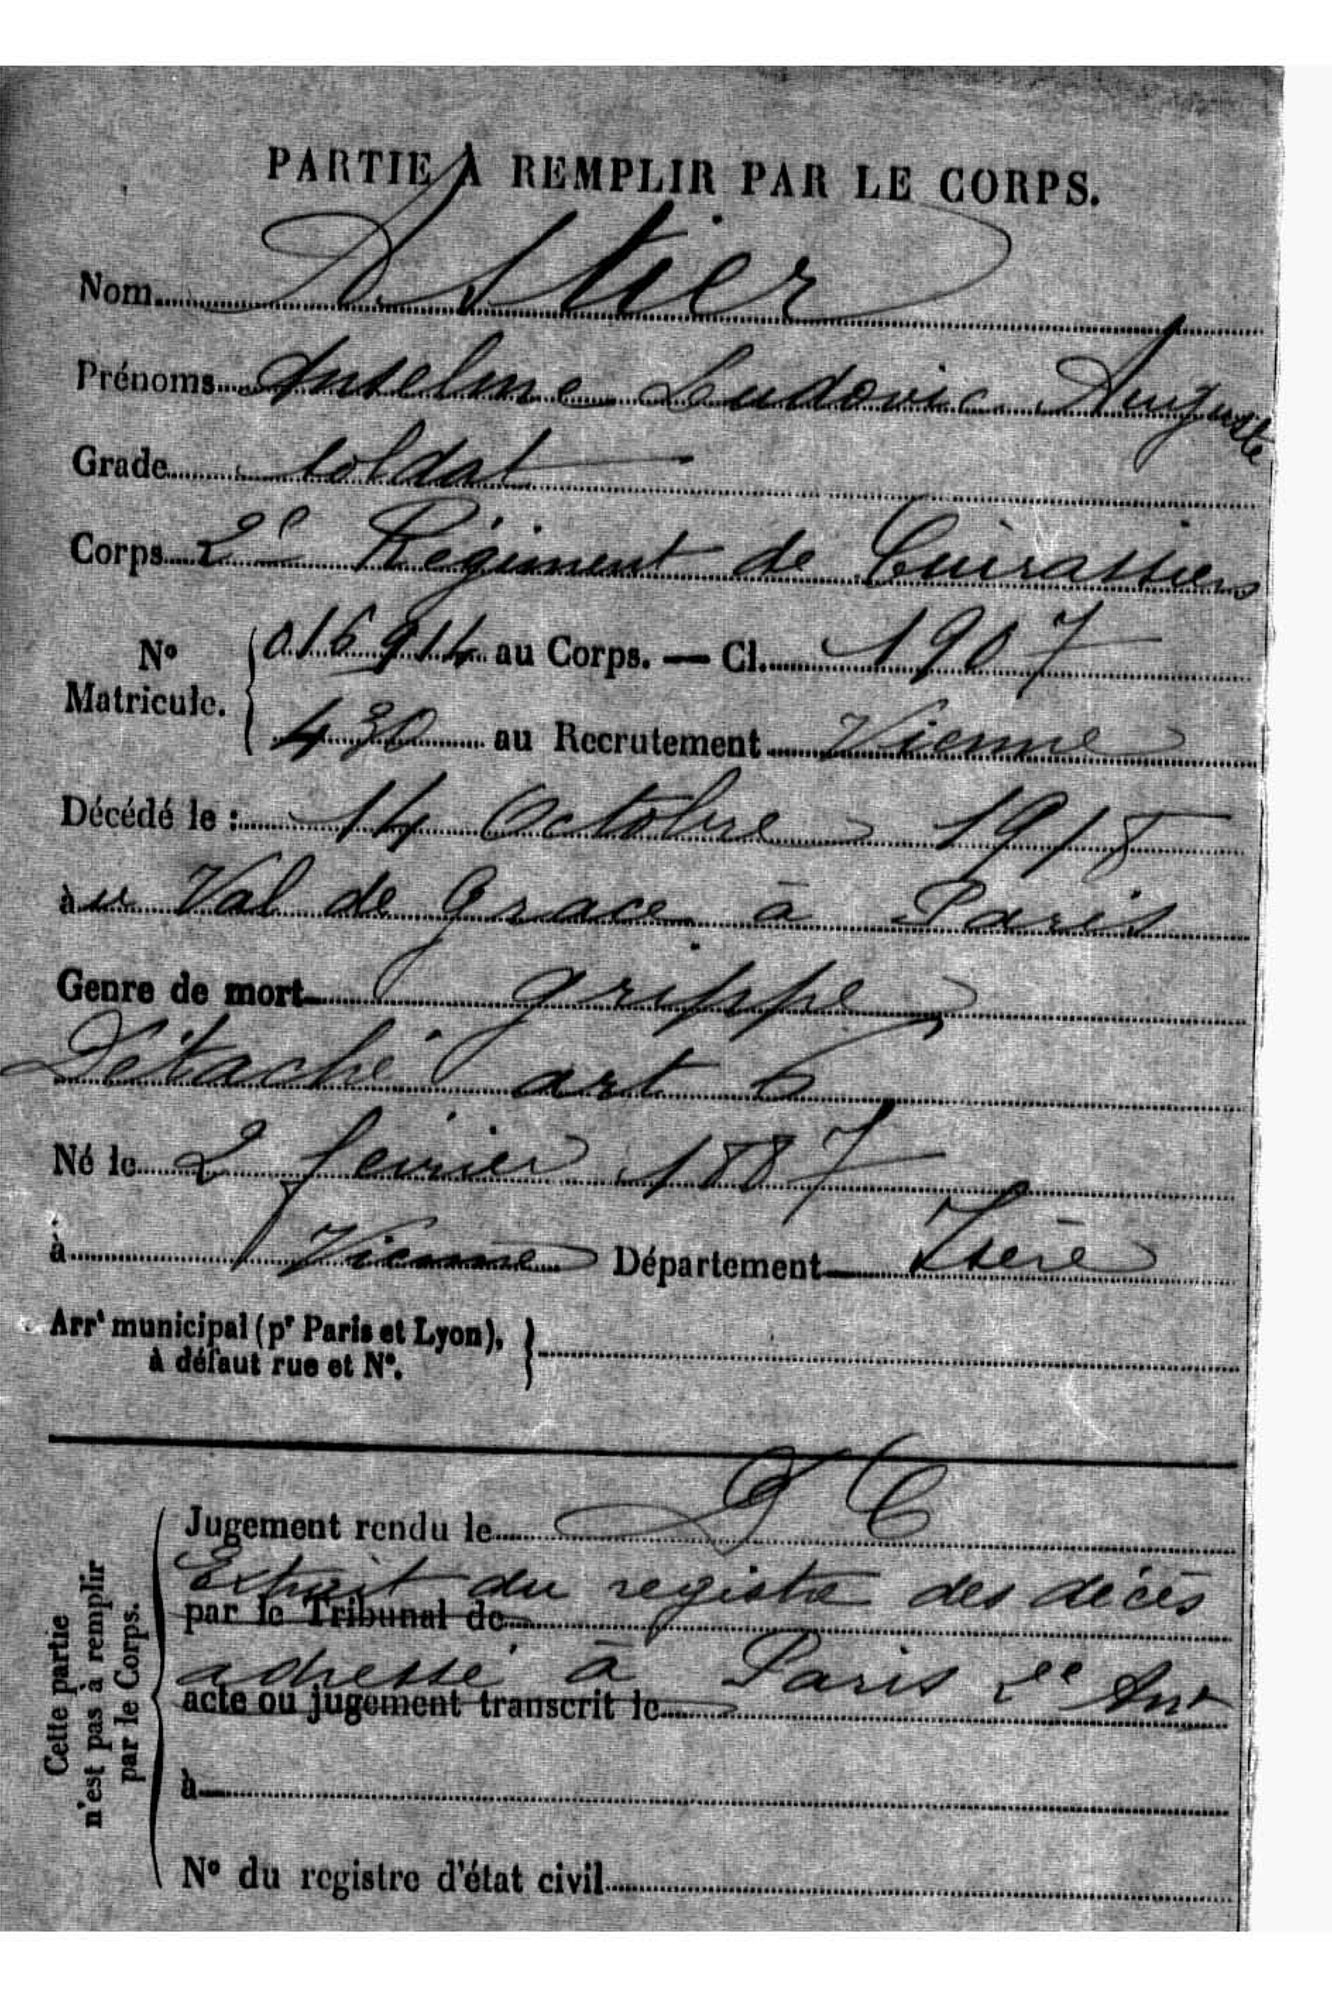 PARTIE A REMPLIR PAR LE CORPS.
Nom Astier
Prénoms Anselme Ludovic Auguste
Grade soldat
Corps 2e Régiment de Cuirassiers
No Matricule. { 016914 au Corps. — Cl. 1907
430 au Recrutement Vienne
Décédé le : 14 Octobre 1918
àu Val de Grace à Paris
Genre de mort grippe
Détaché art 6
Né le 2 février 1887
à Vienne Département Isère
Arrt municipal (pr Paris et Lyon), }
à défaut rue et No.
Cette partie
n'est pas à remplir
par le Corps.
Jugement rendu le
Extrait du registre des décès
par le Tribunal de
adressé à Paris
acte ou jugement transcrit le
à
No du registre d'état civil